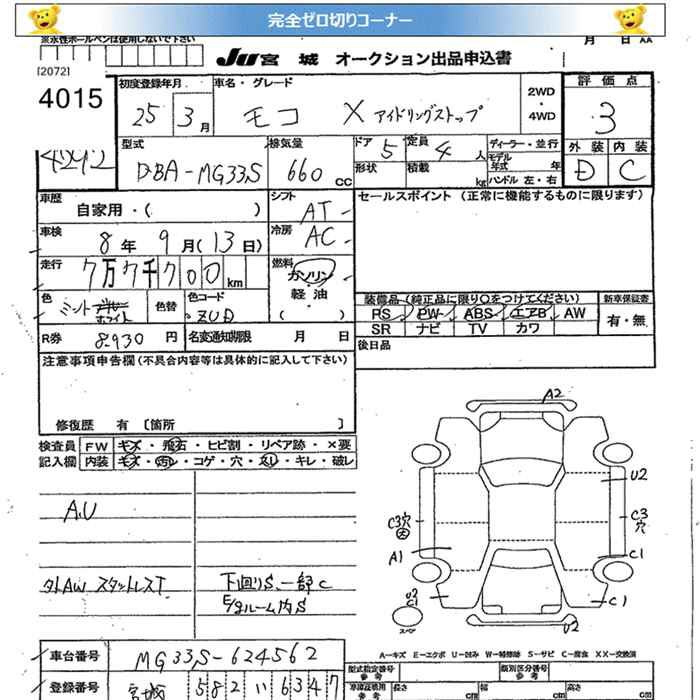 完全ゼロ切りコーナー
※水性ボールペンは使用しないで下さい
月 日 AA
[2072]
JU 宮城 オークション出品申込書
4015
初度登録年月
25 3月
車名・グレード
モコ X アイドリングストップ
2WD
・
4WD
評価点
3
4292
型式
DBA-MG33S
排気量
660 cc
ドア 5
定員 4 人
形状
積載 kg
ディーラー・並行
モデル年式 年
ハンドル 左・右
外装 内装
D C
車歴
自家用・( )
シフト
AT
セールスポイント (正常に機能するものに限ります)
車検
8年 9月(13日)
冷房
AC
走行
7万7千700km
燃料
ガソリン
軽油
( )
色
ミント
ホワイト
色替
色コード
ZUD
装備品 (純正品に限り○をつけてください)
新車保証書
PS PW ABS エアB AW
有・無
SR ナビ TV カワ
R券
8930 円
名変通知期限 月 日
後日品
注意事項申告欄 (不具合内容等は具体的に記入して下さい)
修復歴 有 [箇所 ]
検査員
記入欄
FW キズ・飛石・ヒビ割・リペア跡・×要
内装 キズ・汚レ・コゲ・穴・スレ・キレ・破レ
A.U
外AW スタットレスT
下廻りS、一部C
E/gルーム内S
A2
U2
C3穴
大
C3
穴
A1
C1
U2
C1
C1
スペア
U2
A-キズ E-エクボ U-凹み W-補修跡 S-サビ C-腐食 XX-交換済
車台番号
MG33S-624562
登録番号
宮城 582 い 6347
型式指定番号
参考
類別区分番号
参考
車庫証明用
参考
長さ cm
幅 cm
高さ cm